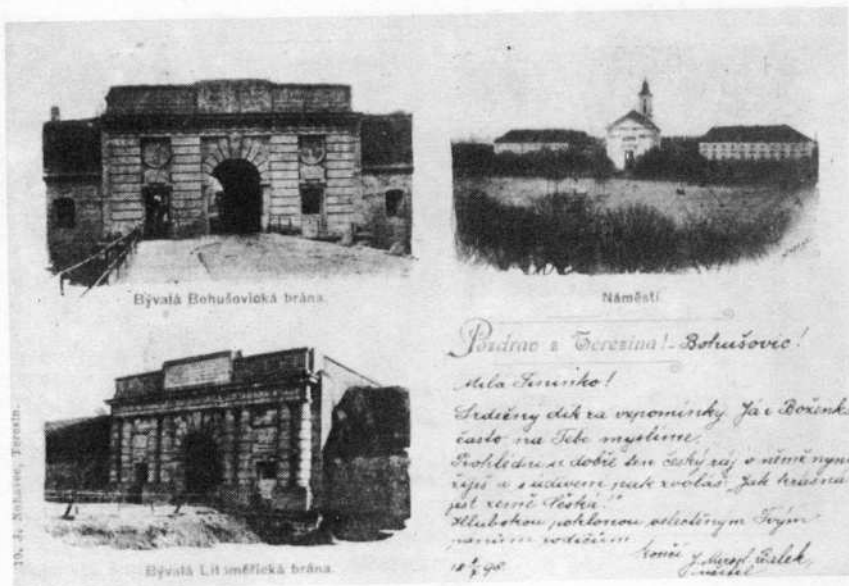 Bývalá Bohušovická brána.
Náměstí.
Pozdrav z Terezína! - Bohušovic!
Milá
Srdečný dík za vzpomínky. Já i Boženka
často na Tebe myslíme.
Prohlédni si dobře ten český ráj v němž nyní
žiješ a s údivem pak zvoláš: Jak krásná
jest země Česká!"
Hlubokou poklonou velectěným Tvým
končí
učitel
Bývalá Litoměřická brána.
Terezín.